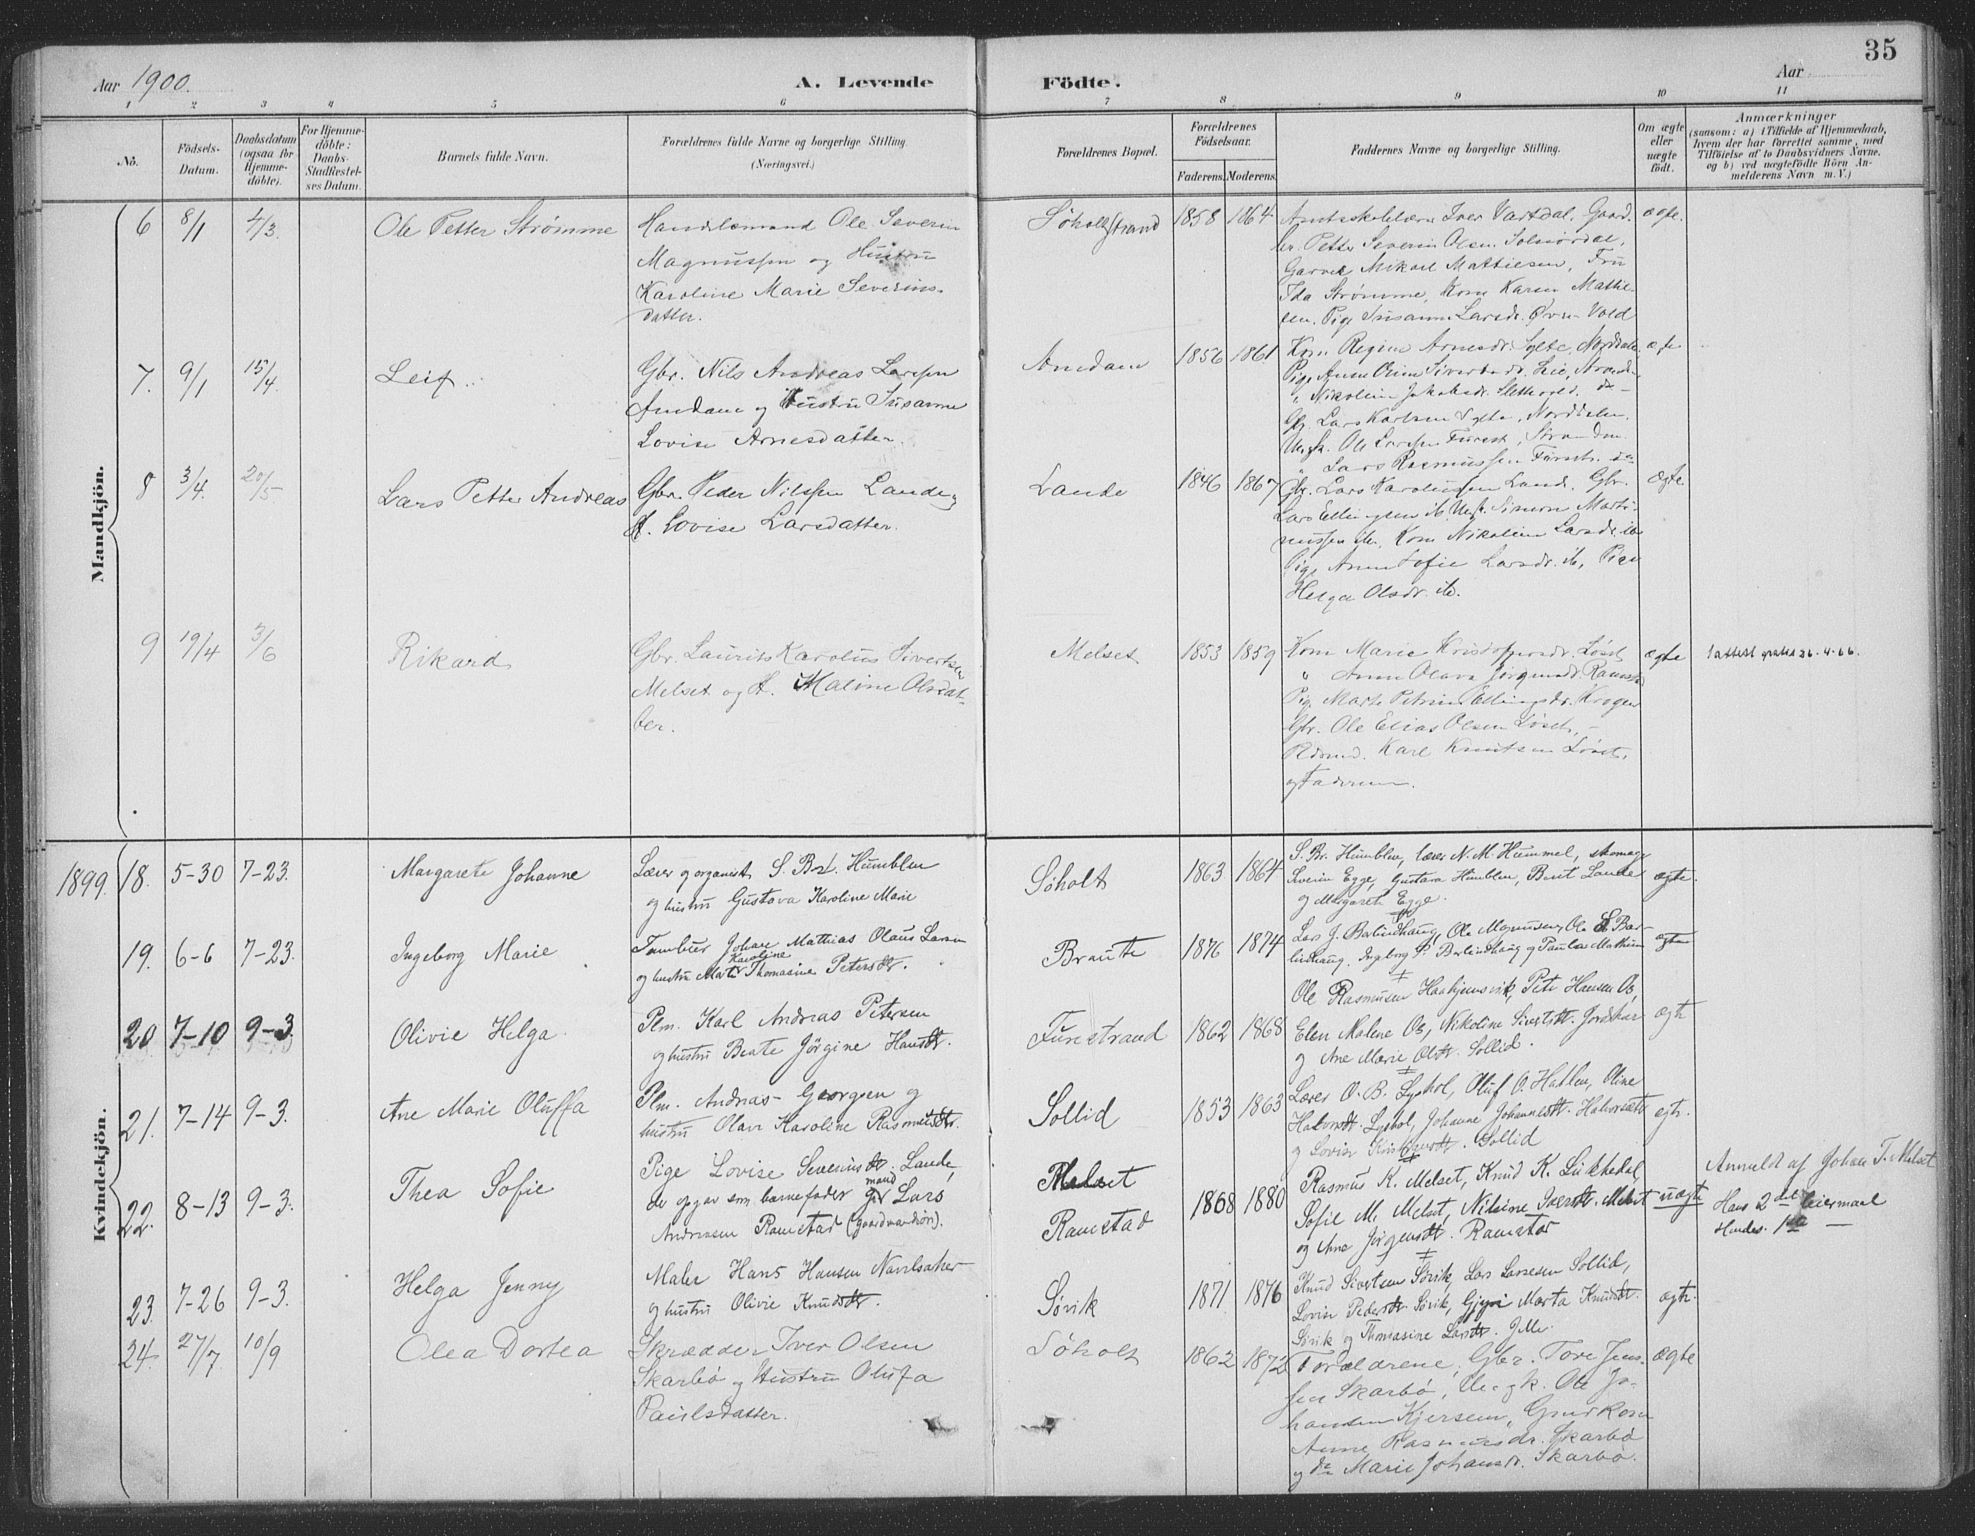 35
Aar 1900.
A. Levende
Födte.
Aar
1 2 3 4 5 6 7 8 9 10 11
No.
Födsels-Datum.
Daabsdatum (ogsaa for Hjemme-döbte).
For Hjemme-döbte: Daabs-Stadfæstel-ses Datum.
Barnets fulde Navn.
Forældrenes fulde Navne og borgerlige Stilling.
(Næringsvei.)
Forældrenes Bopæl.
Forældrenes Födselsaar.
Faderens. Moderens.
Faddernes Navne og borgerlige Stilling.
Om ægte eller uægte födt.
Anmærkninger
(saasom: a) i Tilfælde af Hjemmedaab,
hvem der har forrettet samme, med
Tilföielse af to Daabsvidners Navne,
og b) ved uægtefödte Börn An-
melderens Navn m. V.)
Mandkjön.
6 8/1 4/3 Ole Petter Strømme
Handelsmand Ole Severin
Magnussen og Hustru
Karoline Marie Severins-
datter.
Søholtstrand 1858 1864
Amtsskolelærer Iver Vartdal, Gaard-
br. Petter Severin Olsen Solnørdal,
Garver Mikael Mathiesen, Fru
Ida Strømme, Kone Karen Mathie-
sen, Pige Susanne Larsdr. Øvre-Vold
ægte.
7. 9/1 15/4 Leif
Gbr. Nils Andreas Larsen
Amdam og Hustru Susanne
Lovise Arnesdatter.
Amdam 1856 1861
Kone Regine Arnesdr. Sylte, Norddalen
Pige Anne Oline Sivertsdr. Lie,
" Nikoline Jakobsdr. Slettvold. do
Gbr. Lars Karlsen Sylte, Norddalen.
Ungk. Ole Larsen Furset,
" Lars Rasmussen Furset. do
ægte
8 3/4 20/5 Lars Petter Andreas
Gbr. Peder Nilssen Lande og
H. Lovise Larsdatter.
Lande 1846 1867
Gbr. Lars Karolussen Lande. Gbr.
Lars Ellingsen ib. Ungk. Simon Marti-
nussen ib. Kone Nikoline Larsdr. ib.
Pige Anne Sofie Larsdr. ib. Pige
Helga Olsdr. ib.
ægte
9 19/4 3/6 Rikard
Gbr. Laurits Karolus Sivertsen
Melset og H. Maline Olsdat-
ter.
Melset 1853 1859
Kone Marie Kristoffersdr. Løset
" Anne Olava Jørgensdr. Ramstad
Pige Marte Petrine Ellingsdr. Krogen
Gbr. Ole Elias Olsen Løset,
Karl Knutsen Løset,
og Faderen.
ægte
1 attest gratis 26-4-66.
Kvindekjön.
1899. 18. 5-30 7-23. Margarete Johanne
Lærer og organist S. Br. Humblen
og hustru Gustava Karoline Marie
Søholt 1863 1864
S. Br. Humblen, lærer N. M. Hummel, skomager
Severin Egge, Gustava Humblen, Berit Lande
og Margarete Egge.
ægte.
19. 6-6 7-23. Ingeborg Marie
Tambur Johan Mathias Olaus Larsen
Karoline
og hustru Thomasine Petersdtr.
Braute 1876 1874
Lars J. Berlindhaug, Ole Magnussen, Ole L. Ber-
lindhaug, Ingeborg P. Berlindhaug og Paulas Mathisen
ægte
20. 7-10 9-3. Olivie Helga
Plm. Karl Andreas Petersen
og hustru Beate Jørgine Hansdtr.
Furstrand 1862 1868
Ole Rasmusen Haahjemsvik, Peter Hansen Os,
Elen Malene Os, Nikoline Sivertsdtr. Jordskar
og Ane Marie Olsdtr. Sollid.
ægte
21. 7-14 9-3. Ane Marie Oluffa
Plm. Andreas Georgsen og
hustru Olave Karoline Rasmusdtr.
Sollid 1853 1863
Lærer O. B. Lyshol, Oluf O. Hatlen, Oline
Halvorsdtr. Lyshol, Johanne Johannesdtr. Halvorsætr
og Lovise Kristoffersdtr. Sollid
ægte.
22. 8-13 9-3. Thea Sofie
Pige Lovise Severinsdtr. Lande,
mand
der opgav som barnefader Gbr. Lars
Andreasen Ramstad (gaardmandssøn).
Melset
Ramstad 1868 1880
Rasmus K. Melset, Knud K. Likkedal,
Sofie M. Melset, Nilsine Iversdtr. Melset
og Ane Jørgensdtr. Ramstad
uægte
Anmeldt af Johan T. Melset
Hans 2det leiermaal
Hendes 1ste —
23. 7-26 9-3. Helga Jenny
Maler Hans Hansen Navelsaker
og hustru Olivie Knudsdtr.
Sørvik 1871 1876
Knud Sivertsen Sørvik, Lars Larsesen Sollid,
Lovise Pedersdtr. Sørvik, Marta Knudsdtr.
Sørvik og Thomasine Larsdtr.
ægte.
24. 27/7 10/9 Olea Dortea
Skrædder Iver Olsen
Skarbø og Hustru Olufa
Paulsdatter.
Søholt 1862 1872
Forældrene, Gbr. Tore Jens-
sen Skarbø, Ungk. Ole Jo-
hansen Kjersem, Gmdkone
Anne Rasmusdr. Skarbø
og do Marie Johansdr. Skarbø.
ægte